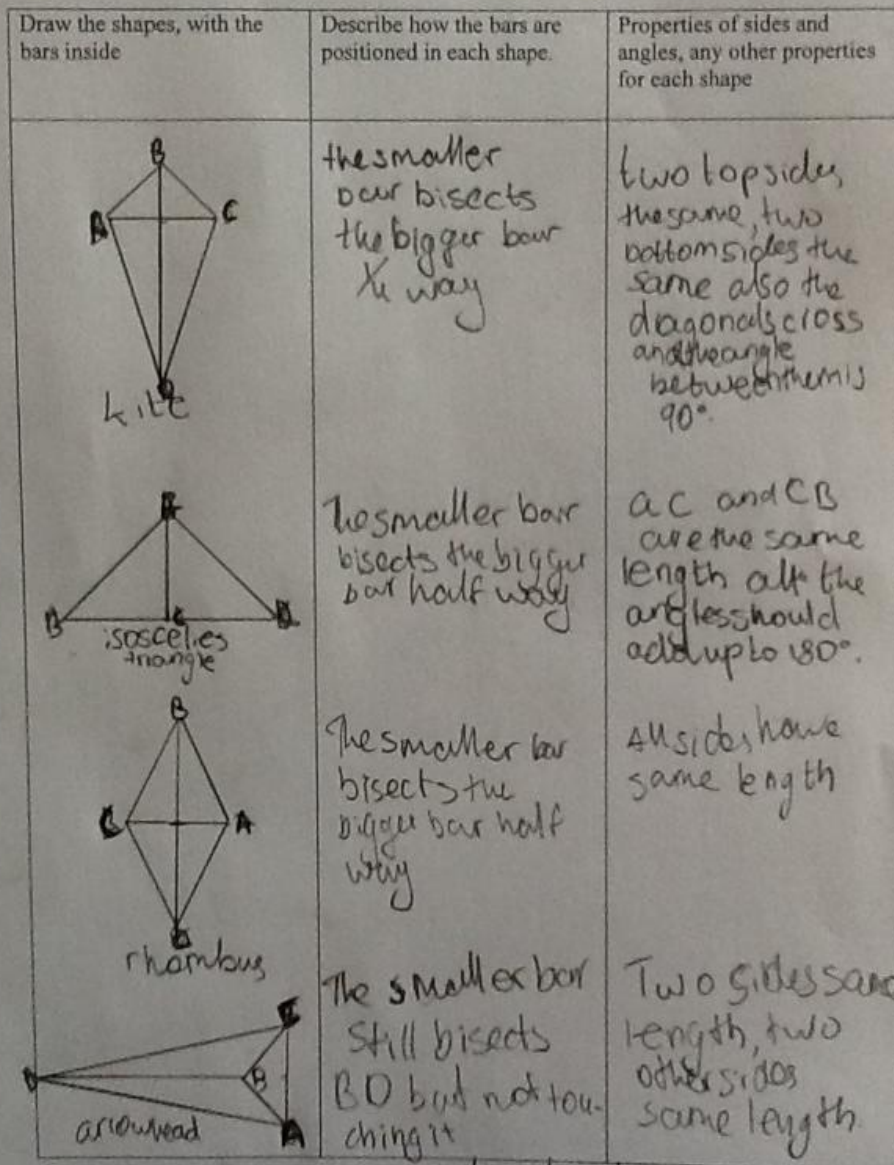 Draw the shapes, with the
bars inside
Describe how the bars are
positioned in each shape.
Properties of sides and
angles, any other properties
for each shape
B
A
C
D
kite
the smaller
bar bisects
the bigger bar
¼ way
two top sides
the same, two
bottom sides the
same also the
diagonals cross
and the angle
between them is
90°.
A
B
C
D
isoscelies
triangle
The smaller bar
bisects the bigger
bar half way
ac and CB
are the same
length all the
angles should
add up to 180°.
B
C
A
D
rhombus
The smaller bar
bisects the
bigger bar half
way
All sides have
same length
C
D
B
A
arrowhead
The smaller bar
still bisects
BD but not tou-
ching it
Two sides same
length, two
other sides
same length